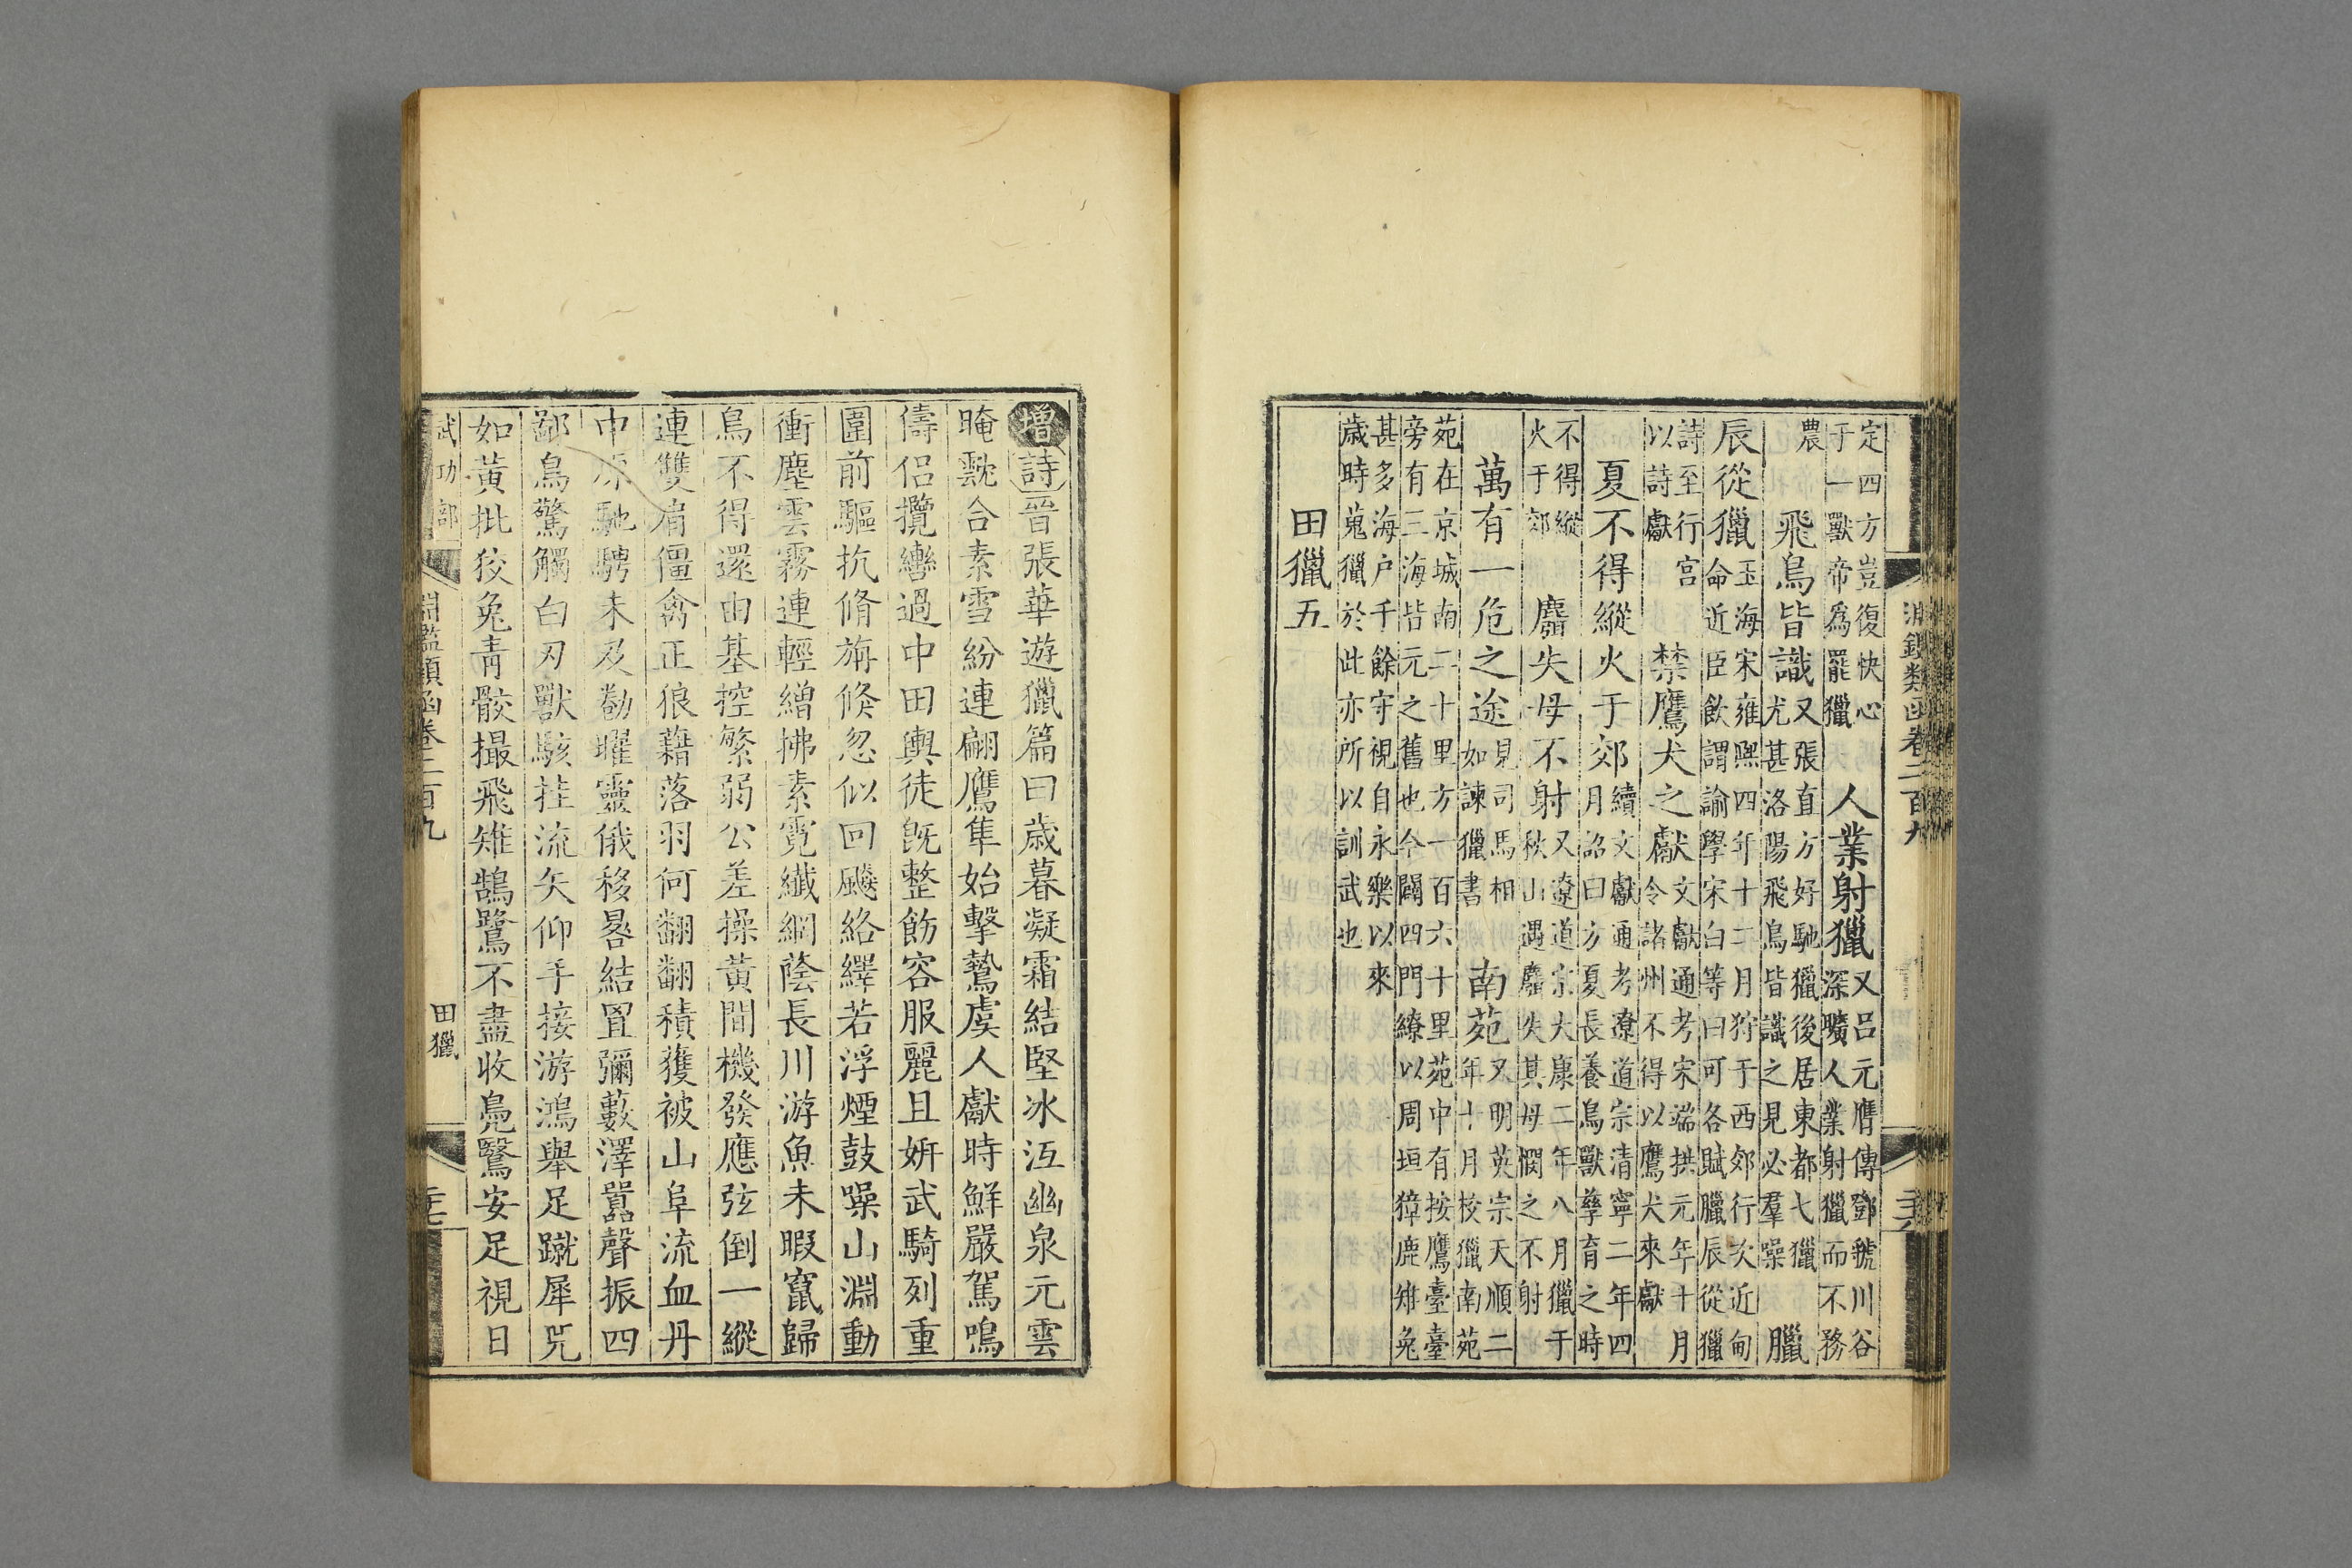 淵鑑類函卷二百九
定四方豈復快心
于一獸帝為罷獵
人業射獵
又呂元膺傳鄧虢川谷
深曠人業射獵而不務
農
飛鳥皆識
又張直方好馳獵後居東都七獵
尤甚洛陽飛鳥皆識之見必羣噪
臘
辰從獵
玉海宋雍熙四年十二月狩于西郊行次近甸
命近臣飲謂諭學宋白等曰可各賦臘辰從獵
詩至行宮
以詩獻
禁鷹犬之獻
文獻通考宋端拱元年十月
令諸州不得以鷹犬來獻
夏不得縱火于郊
續文獻通考遼道宗清寧二年四
月詔曰方夏長養鳥獸孳育之時
不得縱
火于郊
麛失母不射
又遼道宗大康二年八月獵于
秋山遇麛失其母憫之不射
萬有一危之途
見司馬相
如諫獵書
南苑
又明英宗天順二
年十月校獵南苑
苑在京城南二十里方一百六十里苑中有按鷹臺臺
旁有三海皆元之舊也今闢四門繚以周垣獐鹿雉兔
甚多海户千餘守視自永樂以來
歲時蒐獵於此亦所以訓武也
田獵五
增詩晉張華遊獵篇曰歲暮凝霜結堅冰沍幽泉元雲
晻靉合素雪紛連翩鷹隼始擊鷙虞人獻時鮮嚴駕鳴
儔侶攬轡過中田輿徒既整飭容服麗且妍武騎列重
圍前驅抗脩旃倐忽似回飈絡繹若浮煙鼓噪山淵動
衝塵雲霧連輕繒拂素霓纖網蔭長川游魚未暇竄歸
鳥不得還由基控繁弱公差操黃間機發應弦倒一縱
連雙肩僵禽正狼藉落羽何翻翻積獲被山阜流血丹
中原馳騁未及勌曜靈俄移晷結罝彌藪澤嚻聲振四
鄙鳥驚觸白刃獸駭挂流矢仰手接游鴻舉足蹴犀兕
如黃批狡兔青骹撮飛雉鵠鷺不盡收鳧鷖安足視日
武功部
淵鑑類函卷二百九
田獵